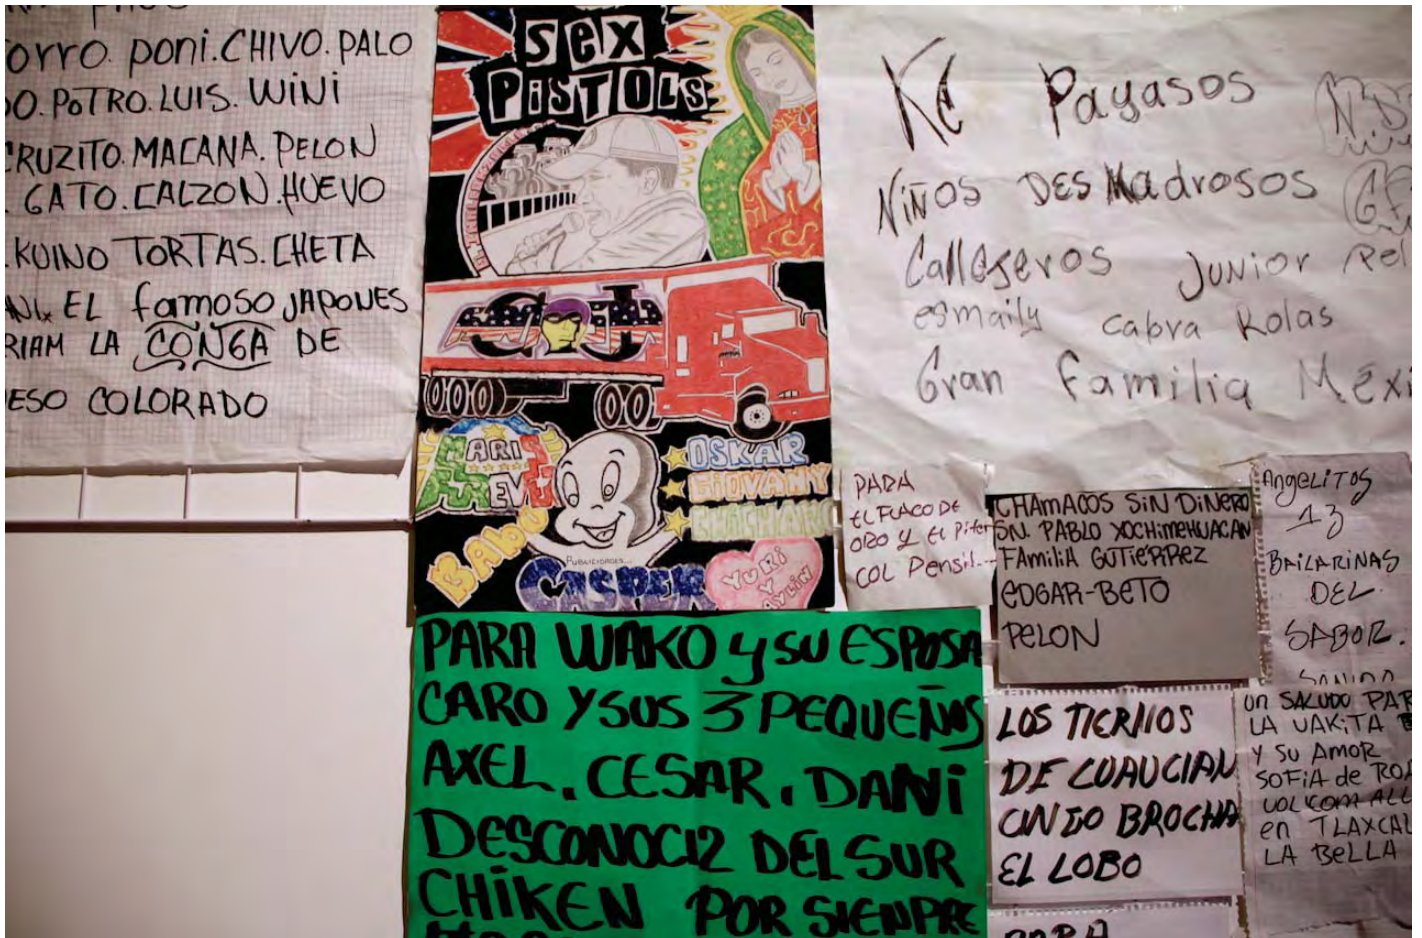 orro. poni. CHIVO. PALO
DO. POTRO. LUIS. WINI
CRUZITO. MACANA. PELON
. GATO. CALZON. HUEVO
. KUINO TORTAS. CHETA
EL famoso JAPONES
RIAM LA CONGA DE
ESO COLORADO
SEX
PISTOLS
CASPER
PUBLICIDADES...
BABU
OSKAR
GIOVANY
YURI
Y
AYLIN
Ke Payasos
NIÑOS DESMadrosos
Callejeros Junior Pel
esmaily cabra Rolas
Gran Familia Mexi
PARA
EL FLACO DE
ORO Y EL Piter
COL Pensil...
CHAMACOS SIN DINERO
SN. PABLO XOCHIMEHUACAN
FAMILIA GUTIERREZ
EDGAR-BETO
PELON
AngeLiTOS
13
BAILARINAS
DEL
SABOR.
SONIDO
PARA WAKO y SU ESPOSA
CARO Y SUS 3 PEQUEÑOS
AXEL. CESAR. DANi
DESCONOCI2 DEL SUR
CHiKEN POR SIENPRE
LOS TIERNOS
DE CUAUCIAN
CINGO BROCHA
EL LOBO
PARA
un SALUDO PAR
LA VAKiTA
Y SU AMOR
SOFiA de
en TLAXCAL
LA BELLA